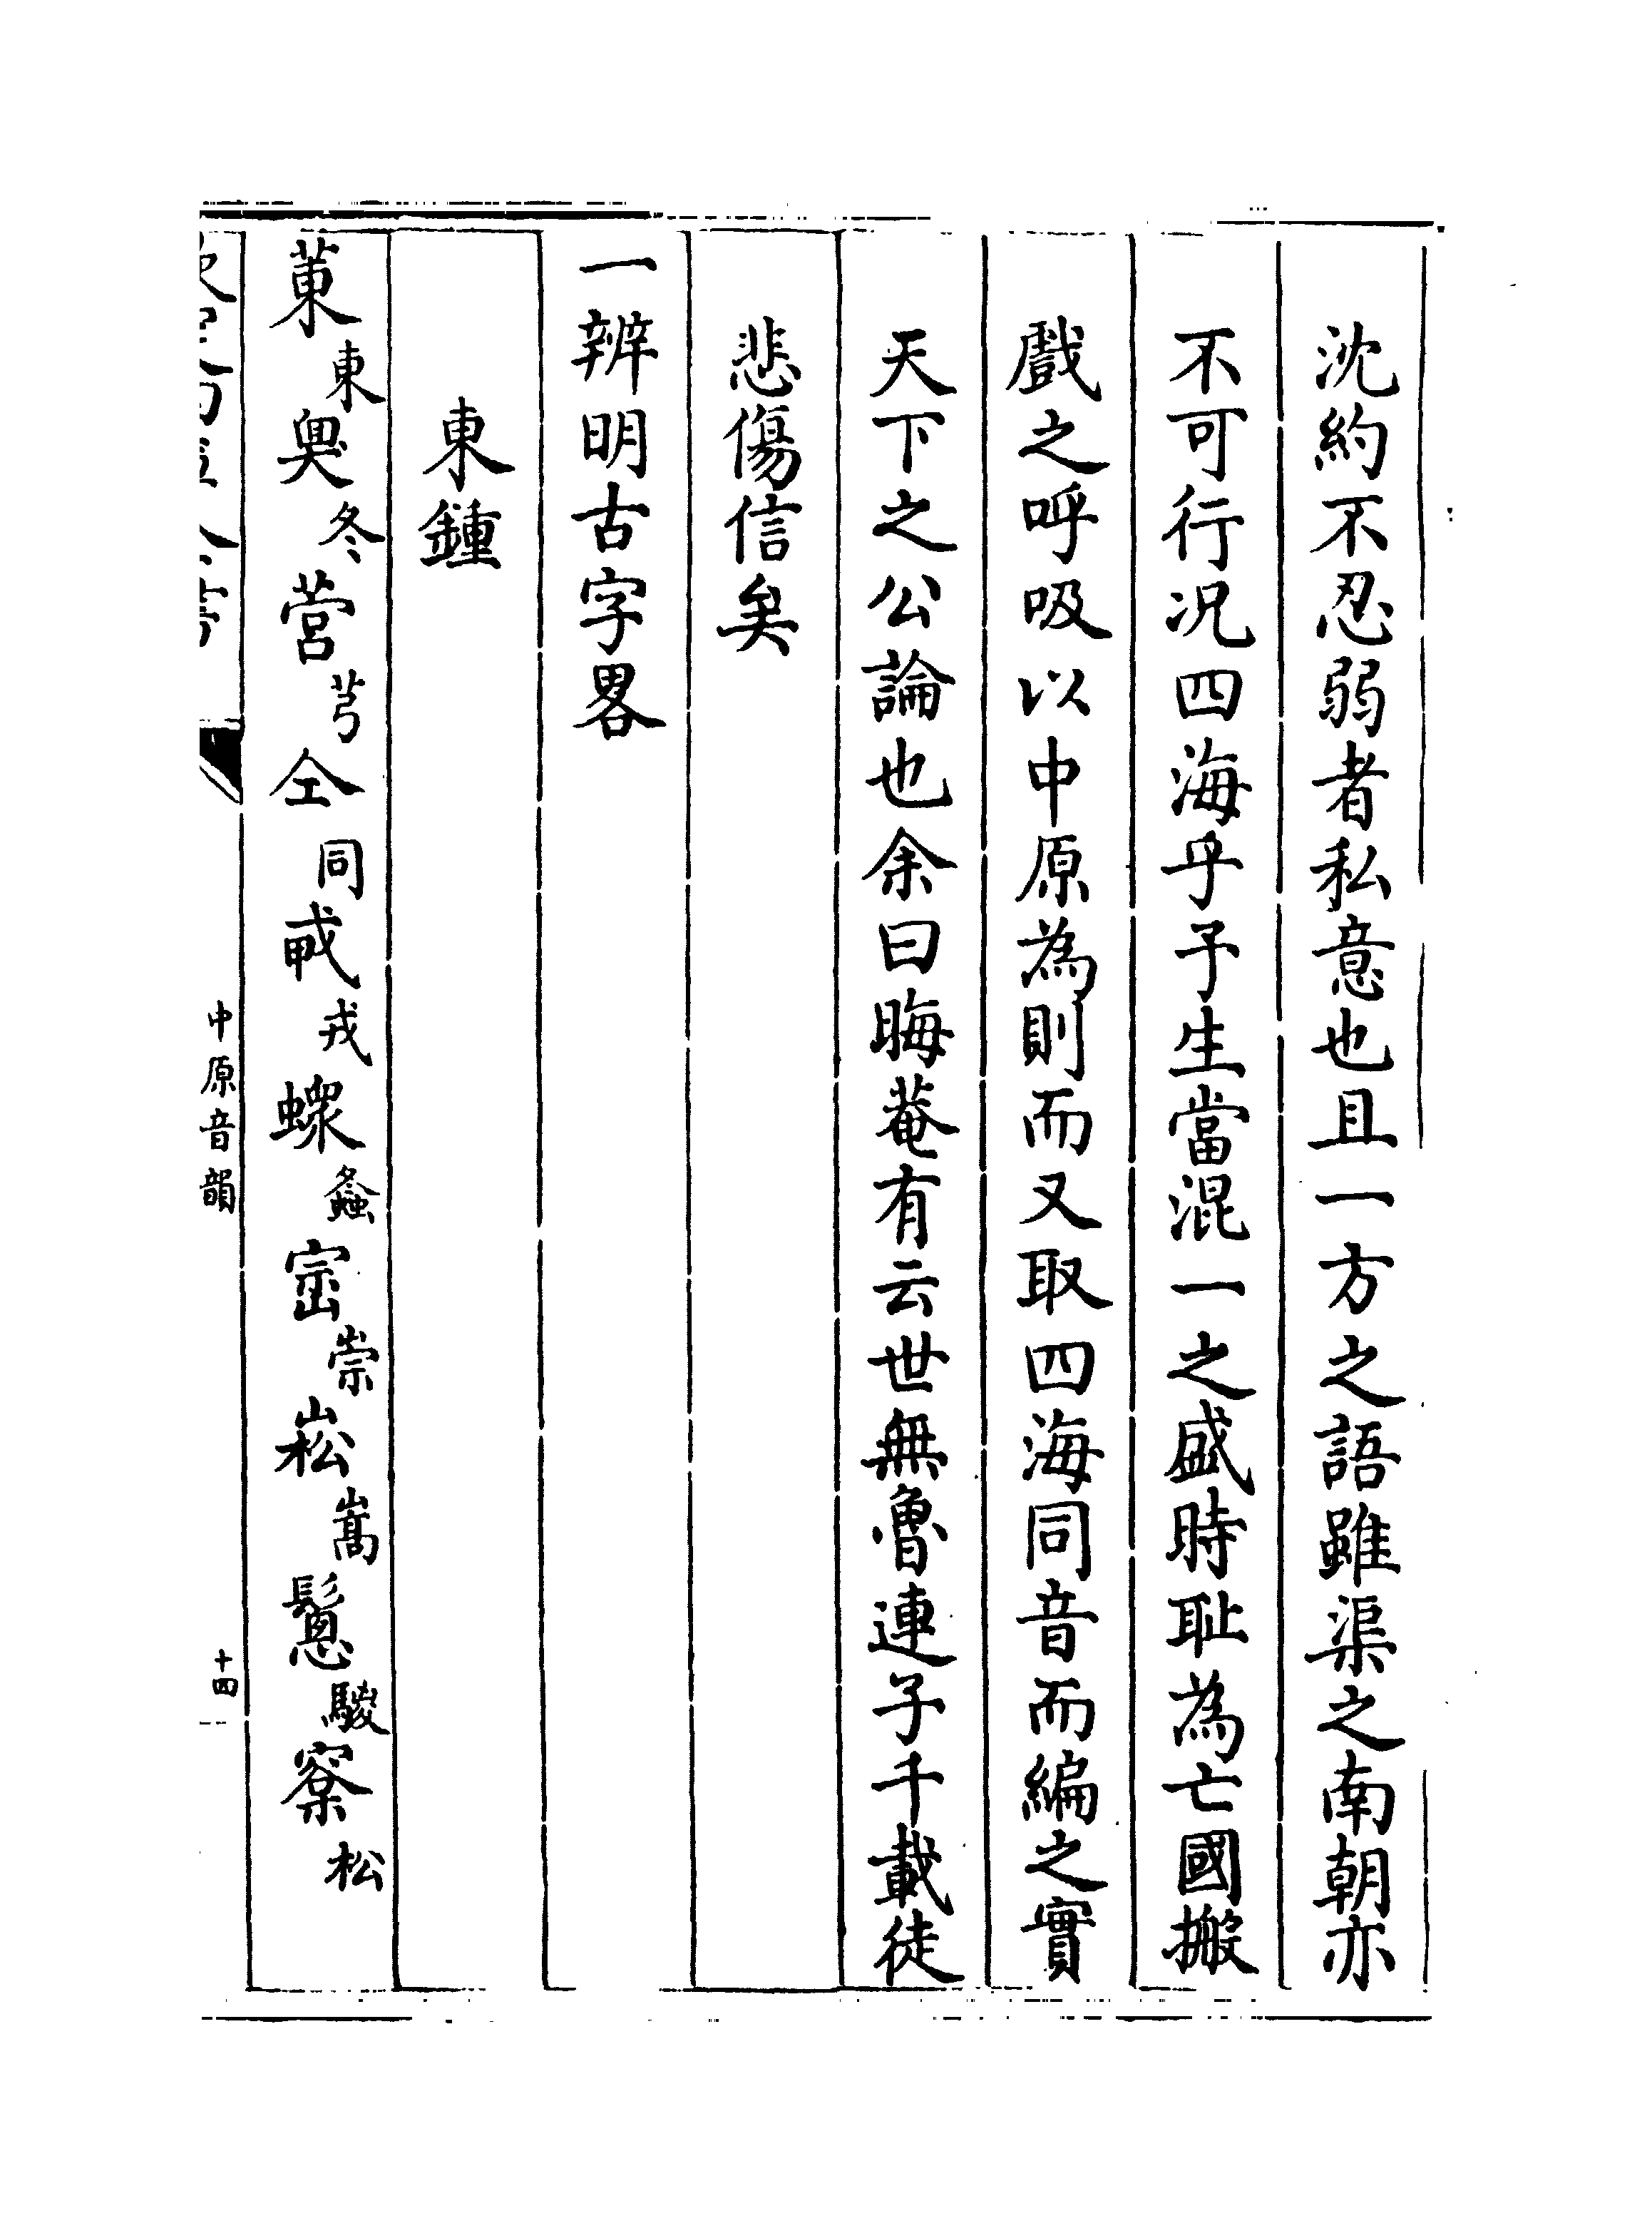 沈約不忍弱者私意也且一方之語雖渠之南朝亦
不可行况四海乎予生當混一之盛時耻為亡國搬
戲之呼吸以中原為則而又取四海同音而編之實
天下之公論也余曰晦菴有云世無魯連子千載徒
悲傷信矣
一辨明古字畧
東鍾
菄東冬营芎仝同戎䗥螽崈崇崧嵩駿㮤松
中原音韻
十四